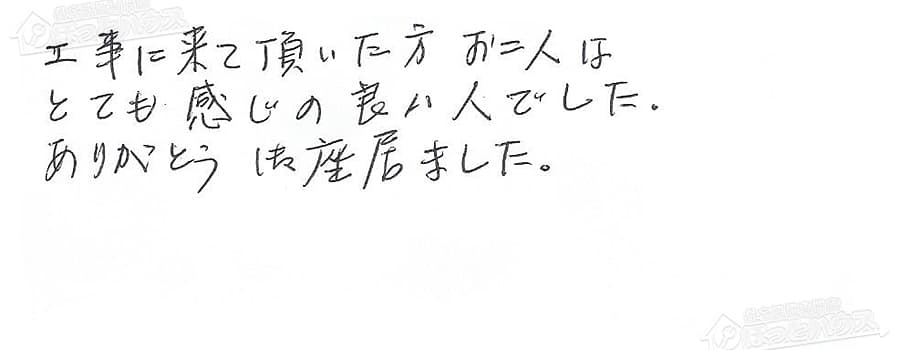 工事に来て頂いた方 お二人は
とても感じの良い人でした.
ありがとう御座居ました。